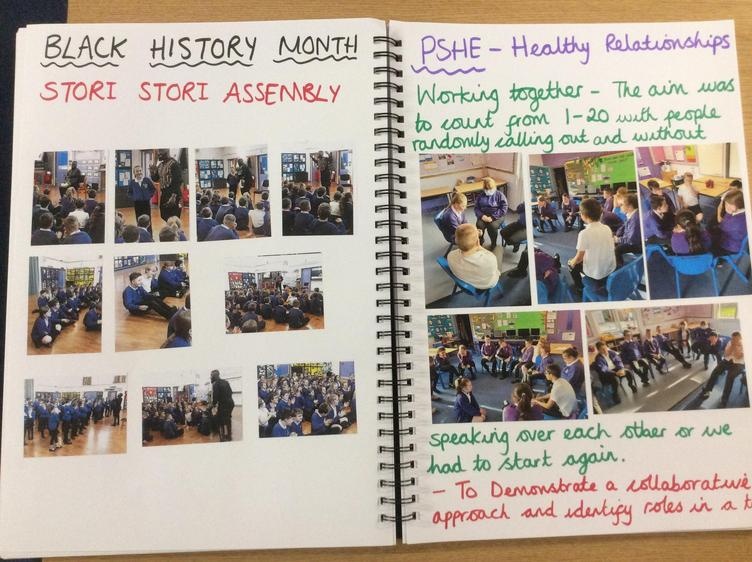 BLACK HISTORY MONTH
STORI STORI ASSEMBLY
PSHE - Healthy Relationships
Working together - The aim was
to count from 1-20 with people
randomly calling out and without
speaking over each other or we
had to start again.
- To Demonstrate a collaborative
approach and identify roles in a t